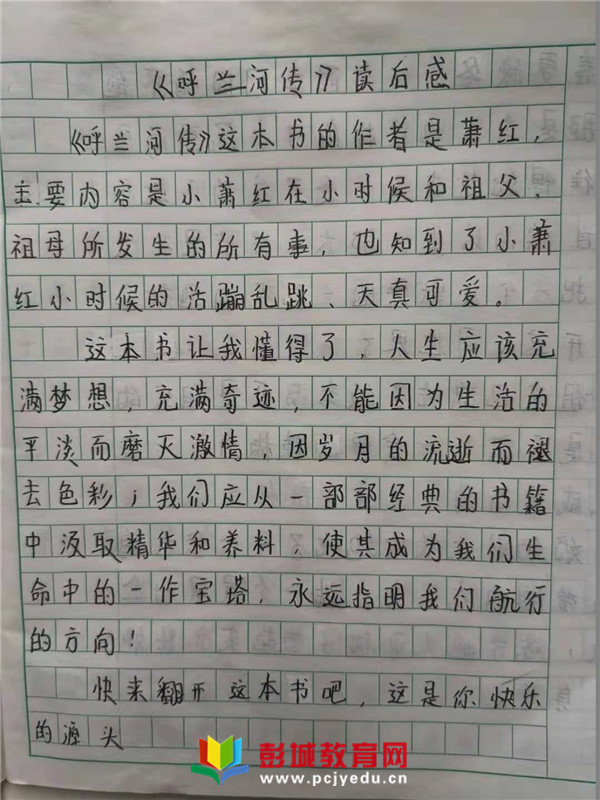 《呼兰河传》读后感
《呼兰河传》这本书的作者是萧红,
主要内容是小萧红在小时候和祖父、
祖母所发生的所有事,也知到了小萧
红小时候的活蹦乱跳、天真可爱。
这本书让我懂得了,人生应该充
满梦想,充满奇迹,不能因为生活的
平淡而磨灭激情,因岁月的流逝而褪
去色彩;我们应从一部部经典的书籍
中汲取精华和养料,使其成为我们生
命中的一作宝塔,永远指明我们航行
的方向!
快来翻开这本书吧,这是你快乐
的源头
彭城教育网
www.pcjyedu.cn